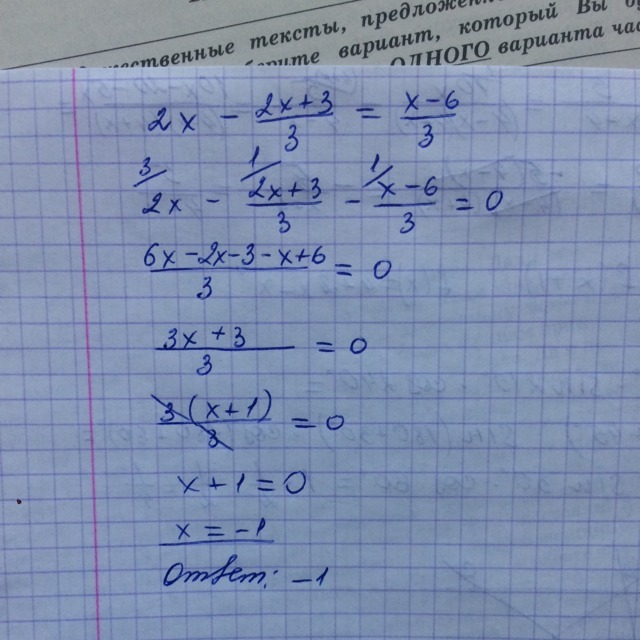 ественные тексты, предложен
берите вариант, который Вы
ОДНОГО варианта
2x - (2x+3)/3 = (x-6)/3
3/ 1/ 1/
2x - (2x+3)/3 - (x-6)/3 = 0
(6x-2x-3-x+6)/3 = 0
(3x+3)/3 = 0
3(x+1)/3 = 0
x+1=0
x=-1
Ответ: -1